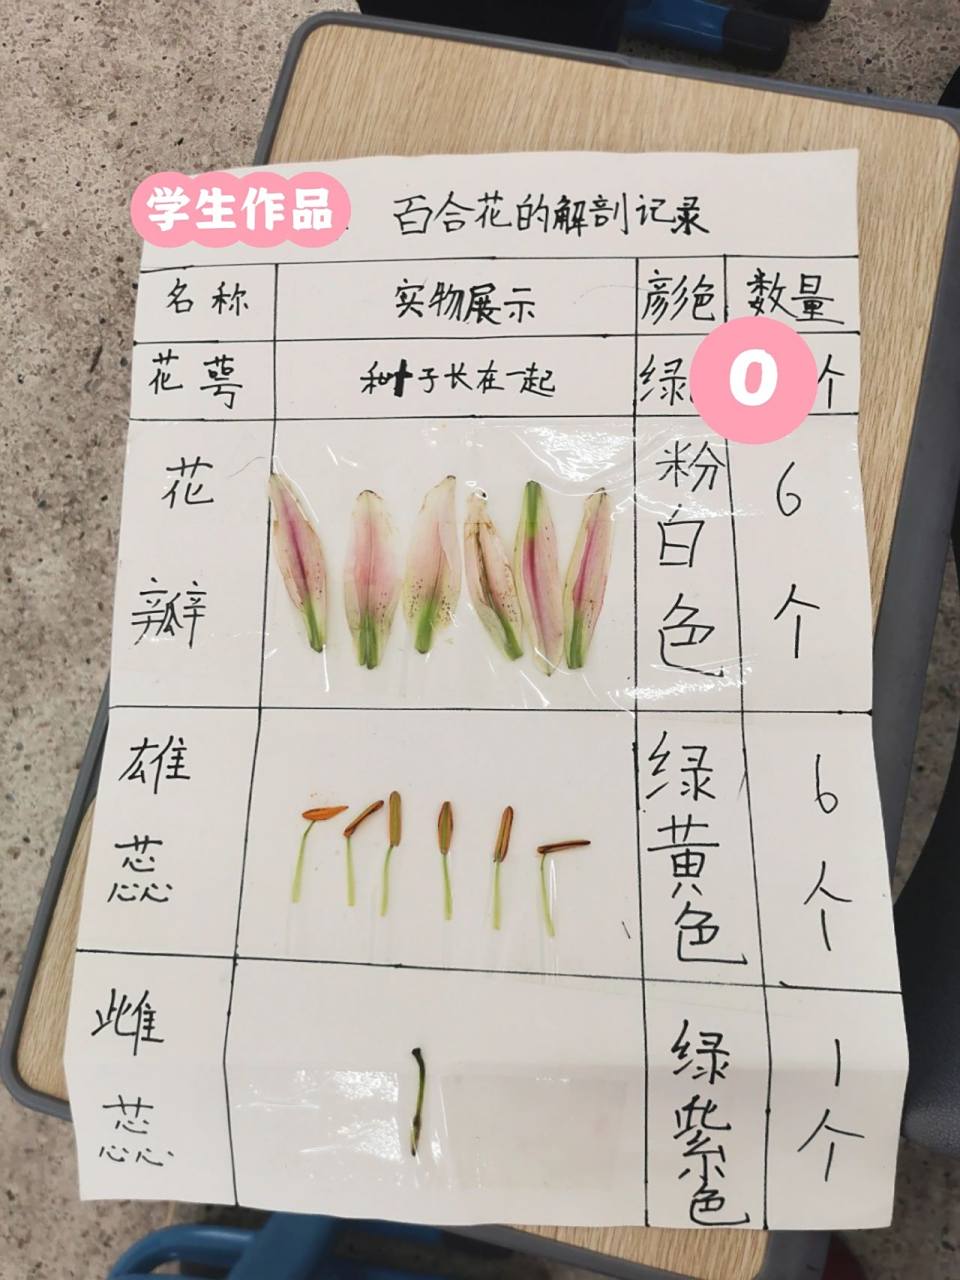 学生作品
百合花的解剖记录
名称 实物展示 颜色 数量
花萼 和叶子长在一起 绿 0 个
花瓣 粉白色 6个
雄蕊 绿黄色 6个
雌蕊 绿紫色 1个